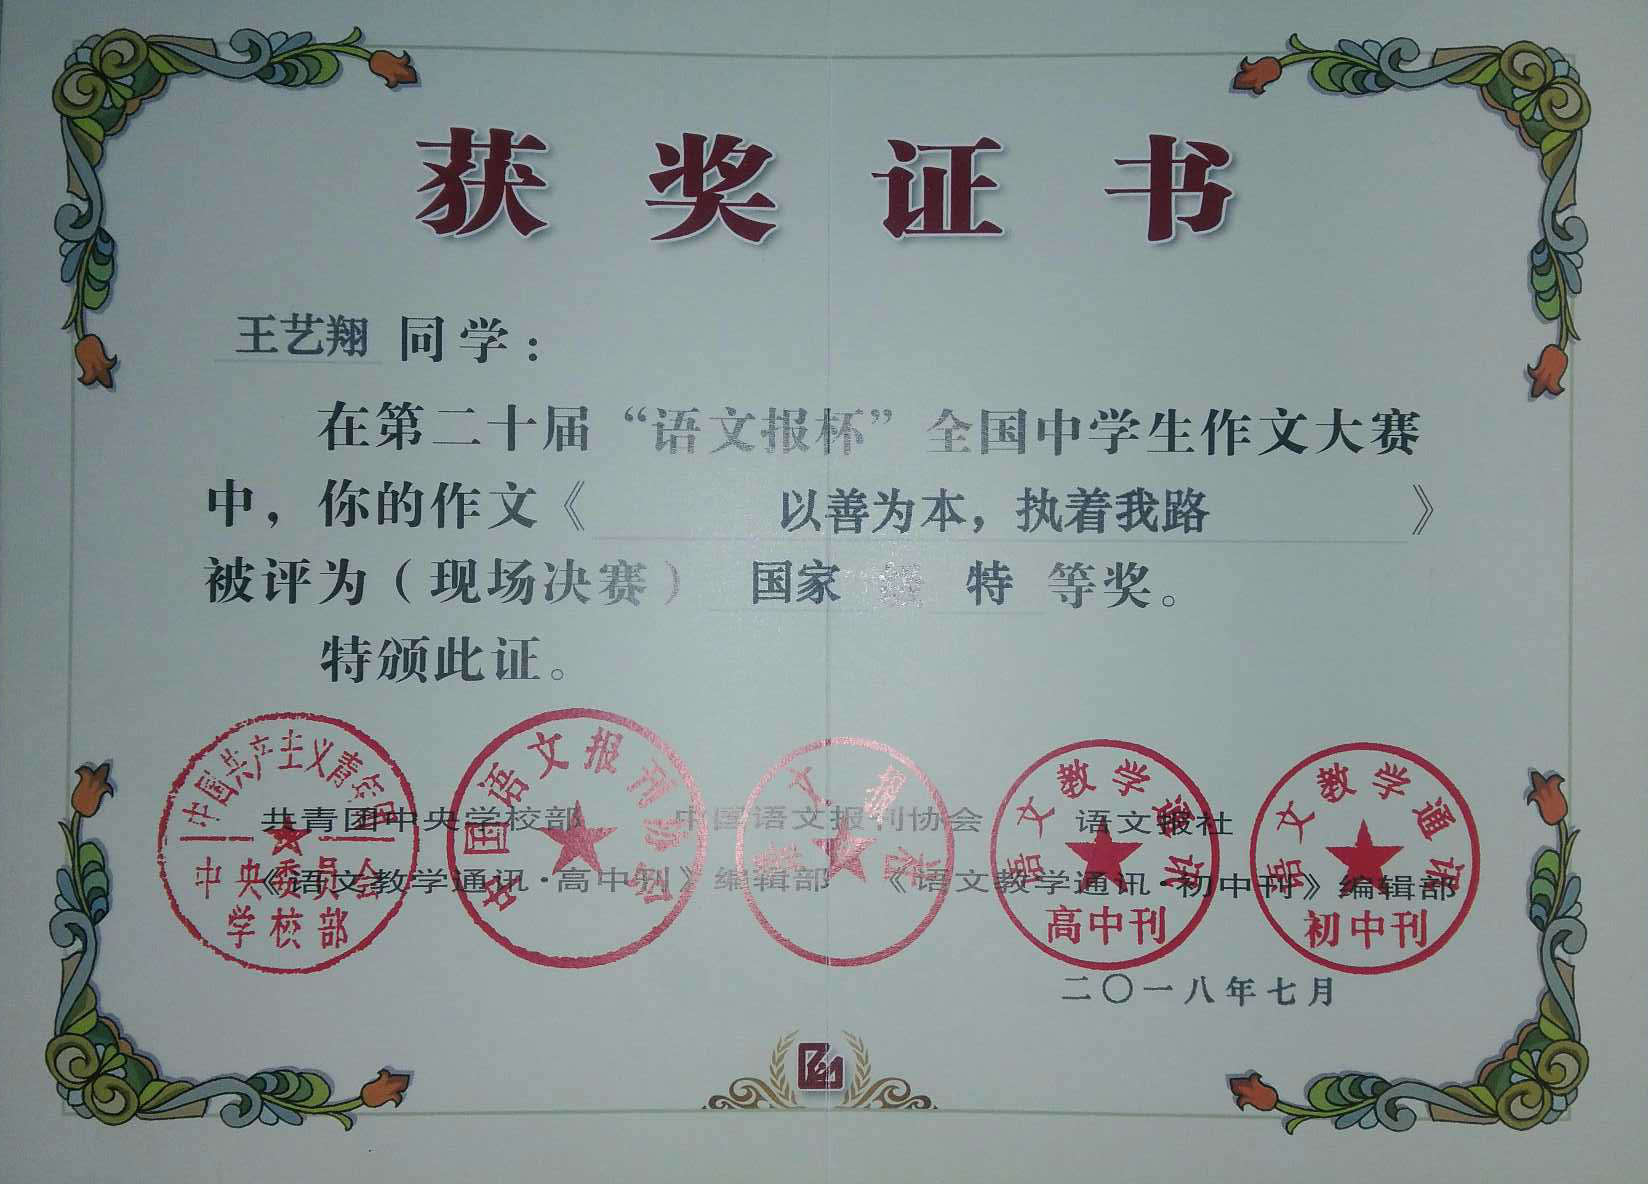 获奖证书
王艺翔 同学：
在第二十届“语文报杯”全国中学生作文大赛
中，你的作文《 以善为本，执着我路 》
被评为（现场决赛） 国家 特 等奖。
特颁此证。
共青团中央学校部 中国语文报刊协会 语文报社
《语文教学通讯·高中刊》编辑部 《语文教学通讯·初中刊》编辑部
中国共产主义青年团
中央委员会
学校部
中国语文报刊协会
语文报社
语文教学通讯
高中刊
语文教学通讯
初中刊
二〇一八年七月